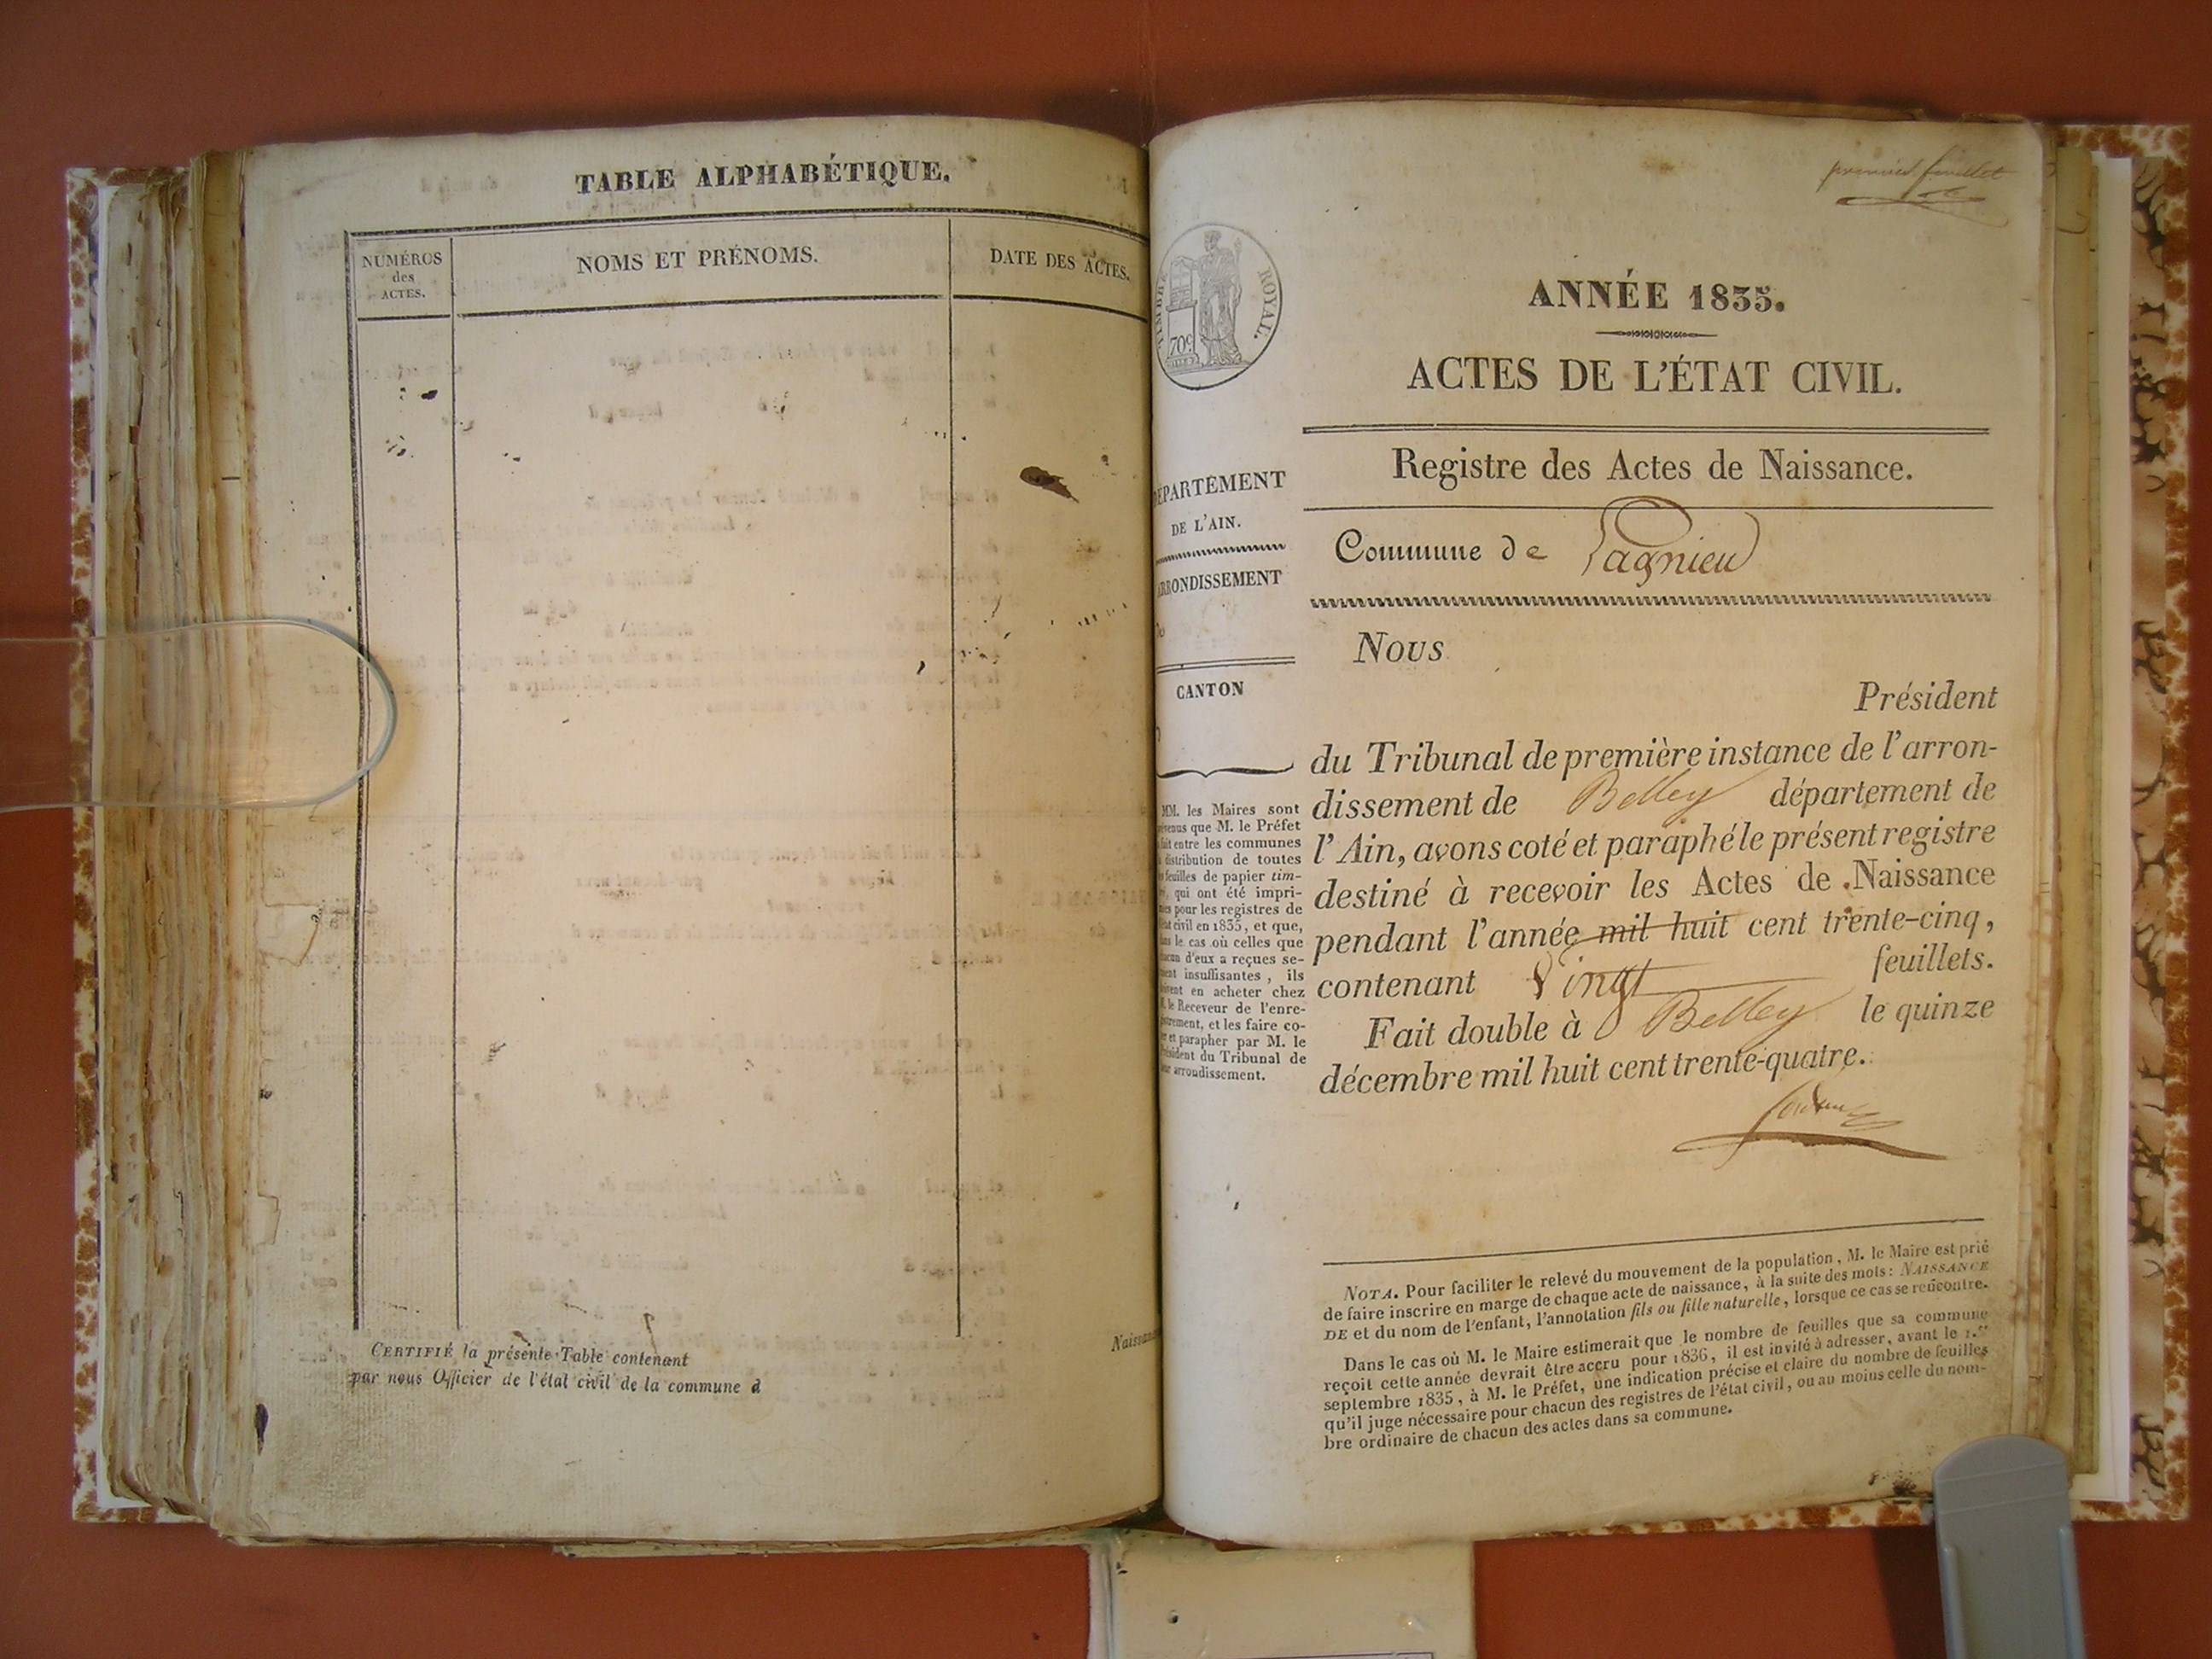 TABLE ALPHABÉTIQUE.
NUMÉROS
des
ACTES.
NOMS ET PRÉNOMS.
DATE DES ACTES.
CERTIFIÉ la présente Table contenant
par nous Officier de l'état civil de la commune d
premier feuillet
TIMBRE ROYAL.
70c
ANNÉE 1835.
ACTES DE L'ÉTAT CIVIL.
Registre des Actes de Naissance.
DÉPARTEMENT
DE L'AIN.
ARRONDISSEMENT
CANTON
MM. les Maires sont
prévenus que M. le Préfet
a fait entre les communes
la distribution de toutes
les feuilles de papier tim-
bré, qui ont été impri-
mées pour les registres de
l'état civil en 1835, et que,
dans le cas où celles que
chacun d'eux a reçues se-
raient insuffisantes, ils
doivent en acheter chez
M. le Receveur de l'enre-
gistrement, et les faire co-
ter et parapher par M. le
Président du Tribunal de
leur arrondissement.
Commune de Lagnieu
Nous
Président
du Tribunal de première instance de l'arron-
dissement de Belley département de
l'Ain, avons coté et paraphé le présent registre
destiné à recevoir les Actes de Naissance
pendant l'année mil huit cent trente-cinq,
contenant Vingt feuillets.
Fait double à Belley le quinze
décembre mil huit cent trente-quatre.
NOTA. Pour faciliter le relevé du mouvement de la population, M. le Maire est prié
de faire inscrire en marge de chaque acte de naissance, à la suite des mots: NAISSANCE
DE et du nom de l'enfant, l'annotation fils ou fille naturelle, lorsque ce cas se rencontre.
Dans le cas où M. le Maire estimerait que le nombre de feuilles que sa commune
reçoit cette année devrait être accru pour 1836, il est invité à adresser, avant le 1.er
septembre 1835, à M. le Préfet, une indication précise et claire du nombre de feuilles
qu'il juge nécessaire pour chacun des registres de l'état civil, ou au moins celle du nom-
bre ordinaire de chacun des actes dans sa commune.